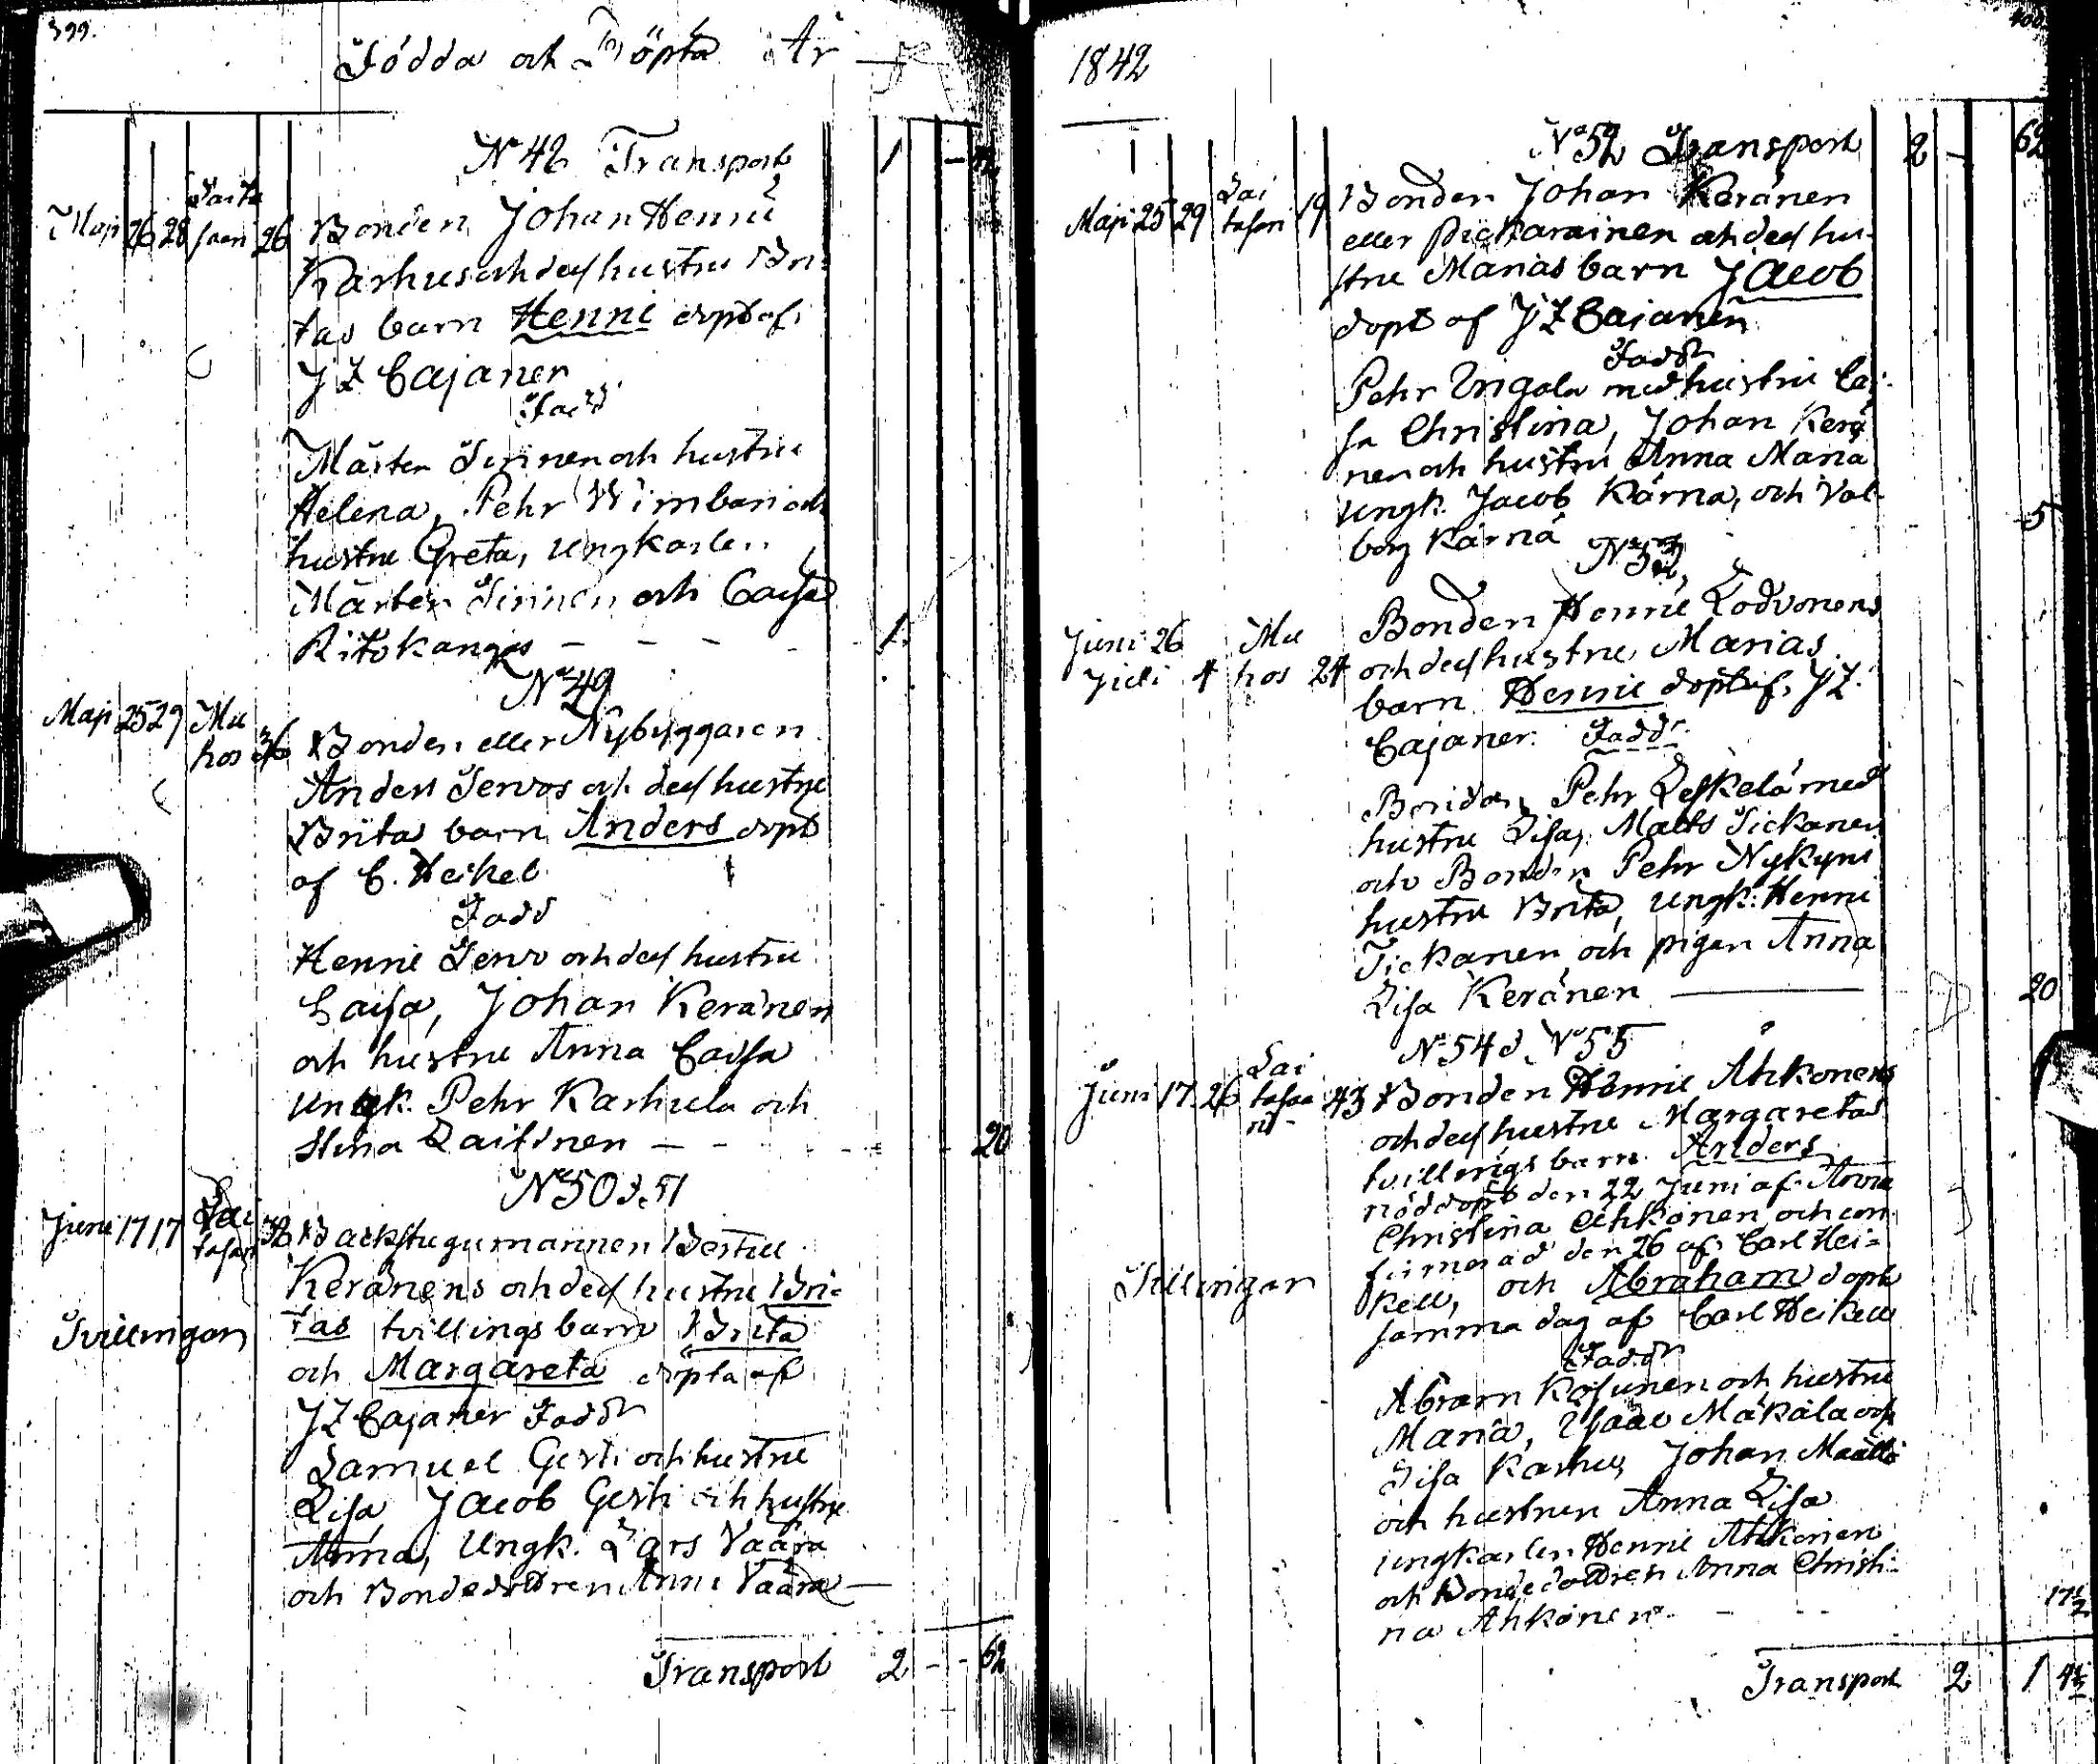 399.
Födda och Döpta År
N 42 Transport 1 -
Maji 26 28 26 Bonden Johan Henric
Karhus och dess hustru Bri-
tas barn Henric döpt af
J Z Cajaner
Fadd
Mårten Sirinen och hustru
Helena, Pehr Wimbari och
hustru Greta, Ungkarlen
Mårten Sirinen och Caisa
Ritokangas - - - - 1.
N 49
Maji 25 29 Mu
hos 36 Bonden eller Nybyggaren
Anders Servos och dess hustru
Britas barn Anders döpt
af C. Heikel
Fadd
Henric Servo och dess hustru
Caisa, Johan Keränen
och hustru Anna Caisa
Ungk. Pehr Karhula och
Stina Laitinen - - - - 20
N 50 & 51
Juni 17 17 Lai
tasari 32 Backstugumannen Bertill
Keränens och dess hustru Bri-
tas tvillingsbarn Brita
Tvillingar
och Margareta döpta af
J Z Cajaner Faddr
Samuel Gerti och hustru
Lisa, Jacob Gerti och hustru
Anna, Ungk. Lars Vaara
och Bondedottren Anna Vaara
Transport 2 - - 62
400.
1842
N 52 Transport 2 - 62
Maji 25 29 Lai
tasari 19 Bonden Johan Keränen
eller och dess hu-
stru Marias barn Jacob
döpt af J Z Cajanen
Faddr
Pehr Ungola med hustru Cai-
sa Christina, Johan Kerä
nen och hustru Anna Maria
Ungk. Jacob Kärnä, och Val-
borg Kärnä 5
N 53
Bonden Henric Lodvonens
Juni 26 Mu
Juli 4 hos 24 och dess hustru Marias
barn Henric döpt af J Z
Cajaner. Faddr
Bonden Pehr Leskelä med
hustru Lisa, Matts Tickanen
och Bonden Pehr Nykyri
hustru Brita, Ungk. Henric
Tickanen och pigan Anna
Lisa Keränen 20
N 54 & N 55
Juni 17 26 Lai
tasaa
ri 43 Bonden Henric Ahkonens
och dess hustru Margaretas
tvillingsbarn Anders
nöddöpt den 22 Juni af Anna
Christina Ahkonen och con
firmerad den 26 af Carl Hei-
Tvillingar
kell, och Abraham döpt
samma dag af Carl Heikell
Faddr
Abram Kosunen och hustru
Maria, Isaac Mäkälä och
Lisa Karhu, Johan Määttä
och hustrun Anna Lisa
ungkarlen Henric Ahkonen
och Bondedottren Anna Christi-
na Ahkonen. 17½
Transport 2 1 4½